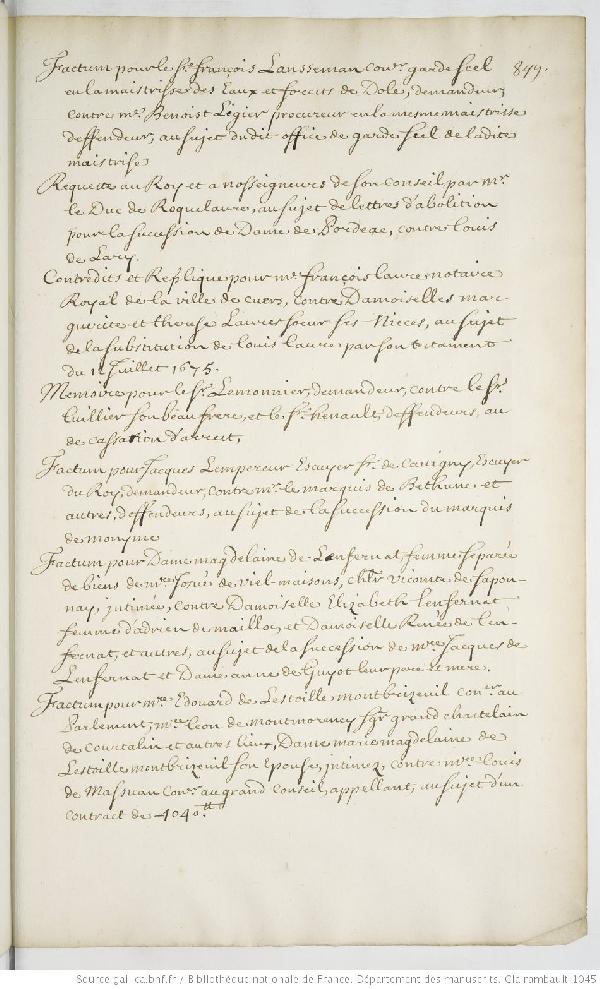 849.
Factum pour le Sr. françois Lansseman Conr. garde scel
en la maistrisse des Eaux et forests de Dole, demandeur,
contre mr. Benoist Légier procureur en la mesme maistrisse
deffendeur, au sujet dudit office de garde scel de ladite
maistrise
Requeste au Roy et a nosseigneurs de son Conseil par mr.
le Duc de Roquelaure, au sujet de lettres d'abolition
pour la succession de Dame de Bordeac, contre louis
de Lary.
Contredits et Replique pour me. françois laure notaire
Royal de la ville de cuers, contre Damoiselles mar-
guerite et therese Laures soeur ses Nieces, au sujet
de la substitution de Louis laure par son testament
du 11 Juillet 1675.
Memoire pour le Sr. Lemonnier, demandeur, contre le Sr.
luillier son beau frere, et le Sr. henault, deffendeurs, au
de cassation d'arrest,
Factum pour Jacques Lempereur Escuyer Sr. de Cauigny, Escuyer
du Roy, demandeur, contre mr. le marquis de Bethune et
autres, deffendeurs, au sujet de la succession du marquis
de monyme
Factum pour Dame magdelaine de Lenfernat, femme separée
de biens de mre. Josué de viel-maisons, chlr. vicomte de sapon-
nay, intimée, contre Damoiselle Elizabeth lenfernat
femme d'adrien de mailloc, et Damoiselle Renée de len-
fernat, et autres, au sujet de la succession de mre. Jacques de
Lenfernat et Dame anne de Guyot leur pere et mere.
Factum pour mre. Edouard de Lestoille montbrizeuil Coner. au
Parlement, mre. leon de montmorency Sgr. grand chastelain
de Courtalin et autres lieux, Dame marie magdelaine de
Lestoille montbrizeuil son Epouse, intimez, contre mre. Louis
de Massuau Conr. au grand Conseil, appellant, au sujet d'un
contract de 4040.tt
Source gallica.bnf.fr / Bibliothèque nationale de France. Département des manuscrits. Clairambault 1045